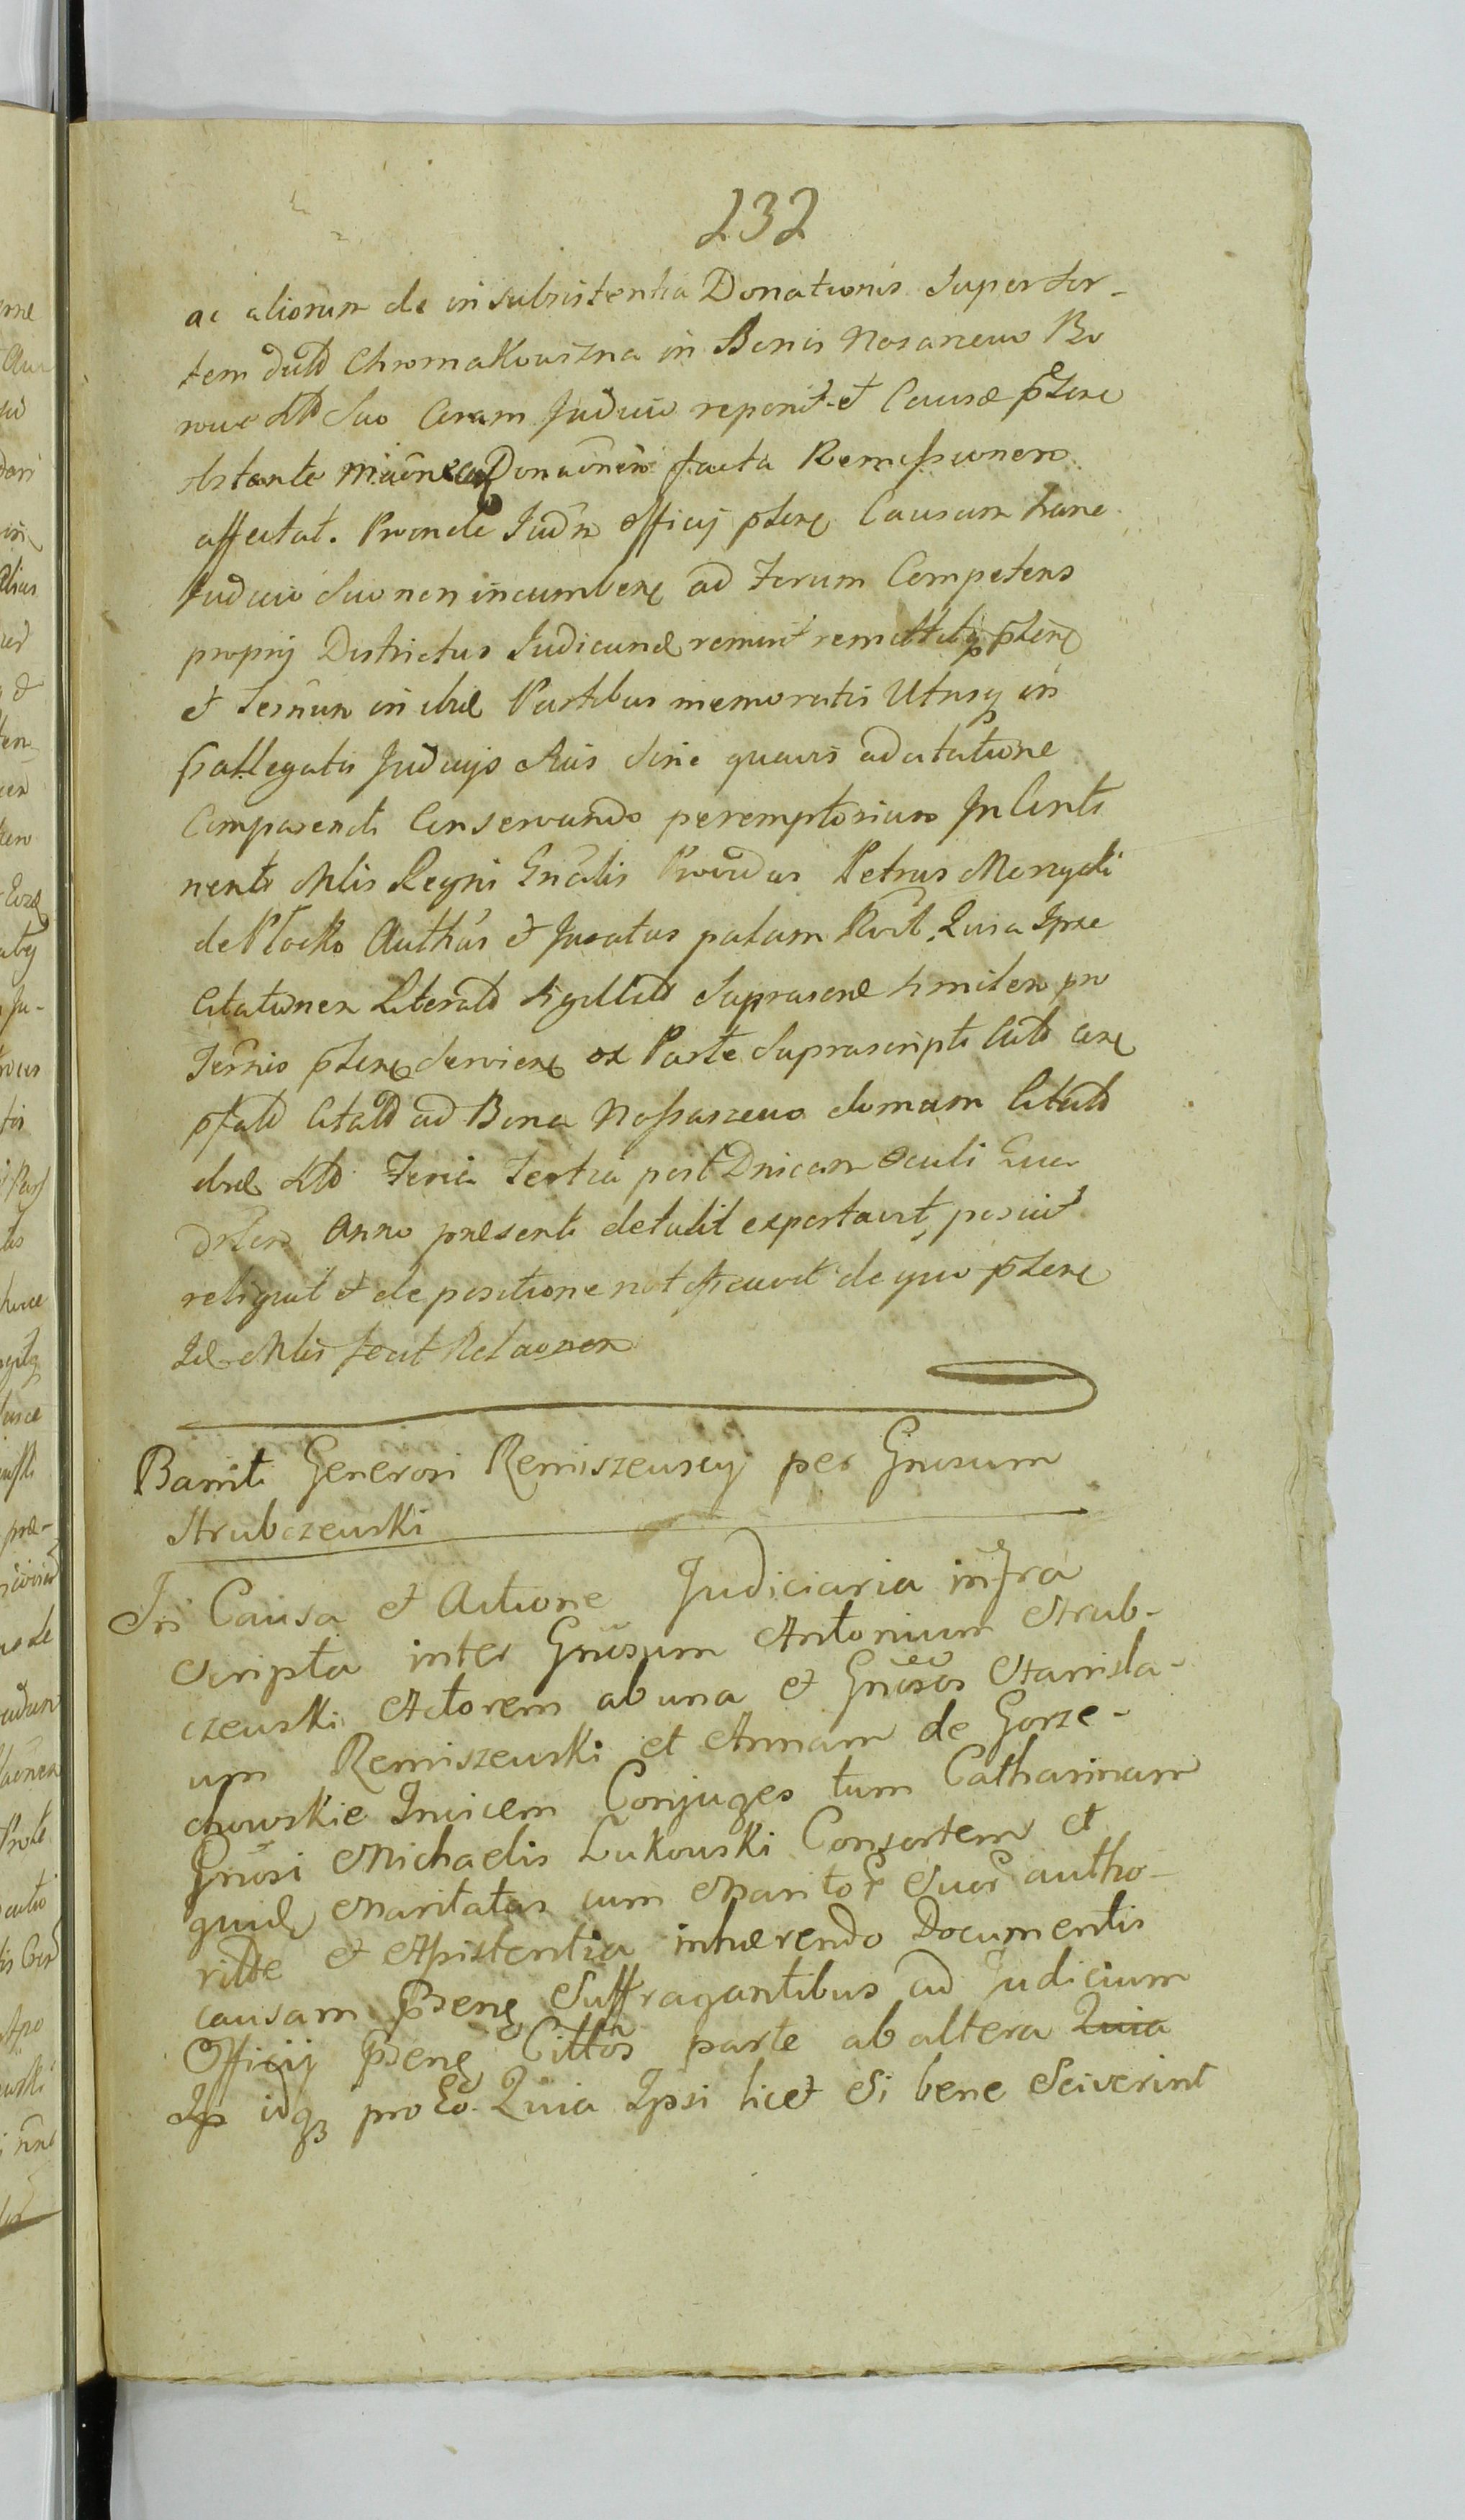 232
ac aliorum de in subsistentia Donationis super Sor-
tem dictā Chromakowizna in Bonis Nosarzewo Bo
rowe sitō Suo Coram Judicio reponit et Causæ pntene
obstante Donaōnem facta Remissionem
affectat. Proinde Judm officij pntene Causam hanc
Judicio Suo non incumbere ad Forum Competens
proprij Districtus Judicand remisit remittitq pntene
et Termin in ibid Partibus memoratis Utrisq in
pallegatis Judicijs Aliis sine quavis adcitatione
Comparendi Conservando peremptorium In Conti
nenti Mlis Regni Gnalis Providus Petrus Marycki
de Plocko Authūs et Juratus palam Rvit, Quia Ipse
Citationem Literatā Sigillatā Suprascrip Similem pro
Termio pntene serviene ex Parte Suprascripti Citō
pfatō Citatō ad Bona Nossarzewo domum Citatō
ibid sitō Feria Tertia post Dnicam Oculi Qua
drlem Anno præsenti detulit exportavit, posuit
reliquit et de positione notificavit de quo pntene
Id Mlis fecit Relaonem
Banniti Generosi Remiszewscy per Gnrosum
Strubczewski
In Causa et Actione Judiciaria infra
scripta inter Gnrosum Antonium Strub-
czewski Actorem ab una et Gnrosos Stanisla-
um Remiszewski et Annam de Gorze-
chowskie Invicem Conjuges tum Catharinam
Gnrosi Michaelis Lukowski Consortem et
quid Maritatas cum Maritor Suor autho-
ritte et Assistentia inhærendo Documentis
causam Psene Suffragantibus ad Judicium
Officij Psene Cittos parte ab altera Quia
Ip idq pro Eo. Quia Ipsi licet Si bene Sciverint